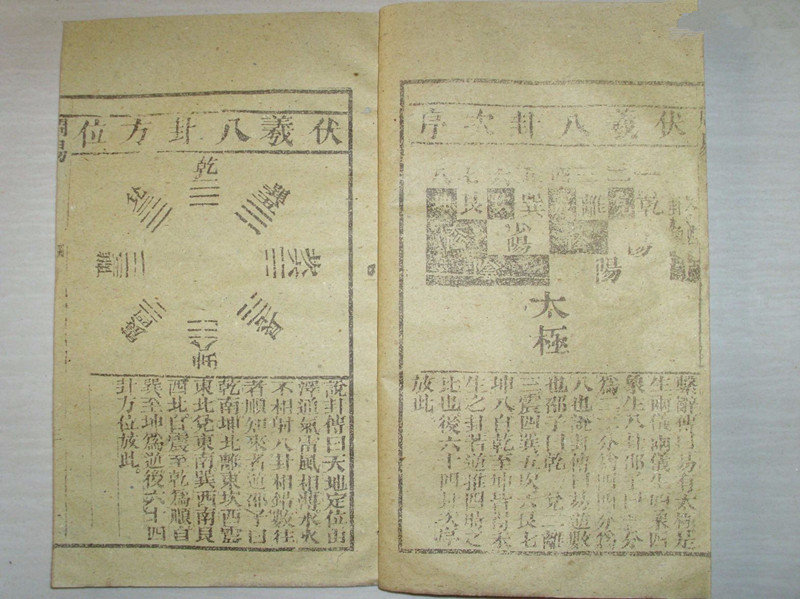 伏羲八卦次序
乾
離
巽
艮
陽
陽
太極
繫辭傳曰易有太極是
生兩儀兩儀生四象四
象生八卦邵子曰一分
為二二分為四四分為
八也說卦傳曰易逆數
也邵子曰乾一兌二離
三震四巽五坎六艮七
坤八自乾至坤皆得未
生之卦若逆推四時之
比也後六十四卦次序
放此
伏羲八卦方位
乾
兌
巽
離
坎
震
艮
坤
說卦傳曰天地定位山
澤通氣雷風相薄水火
不相射八卦相錯數往
者順知來者逆邵子曰
乾南坤北離東坎西震
東北兌東南巽西南艮
西北自震至乾為順自
巽至坤為逆後六十四
卦方位放此。